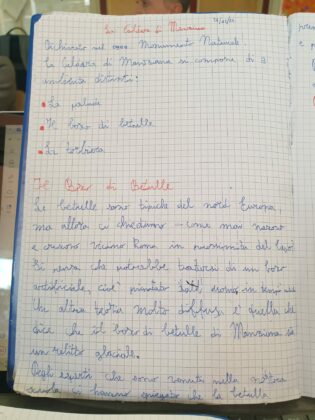 La Caldara di Manziana
Dichiarato nel Monumento Naturale
La Caldara di Manziana si compone di 3
ambienti distinti:
La palude
Il bosco di betulle
La torbiera
Il Bosco di Betulle
Le betulle sono tipiche del nord Europa,
ma allora ci chiediamo come mai nascono
e crescono vicino Roma in prossimità del
Si pensa che potrebbe trattarsi di un bosco
artificiale, cioè piantato
Un altra teoria molto diffusa è quella che
dice che il bosco di betulle di Manziana sia
un relitto glaciale.
Degli esperti che sono venuti nella nostra
scuola ci hanno spiegato che la betulla